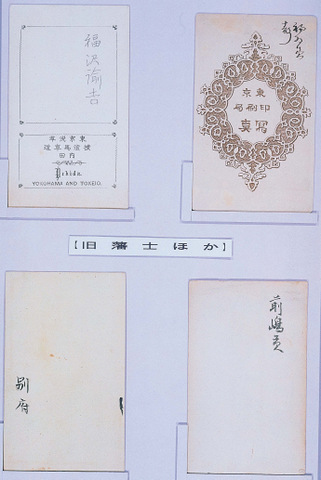 福沢諭吉
東京浅草
横濱馬車道
内田
Uchida.
YOKOHAMA AND TOKEIO.
東京
印刷局
寫真
【旧藩士ほか】
別府
前嶋